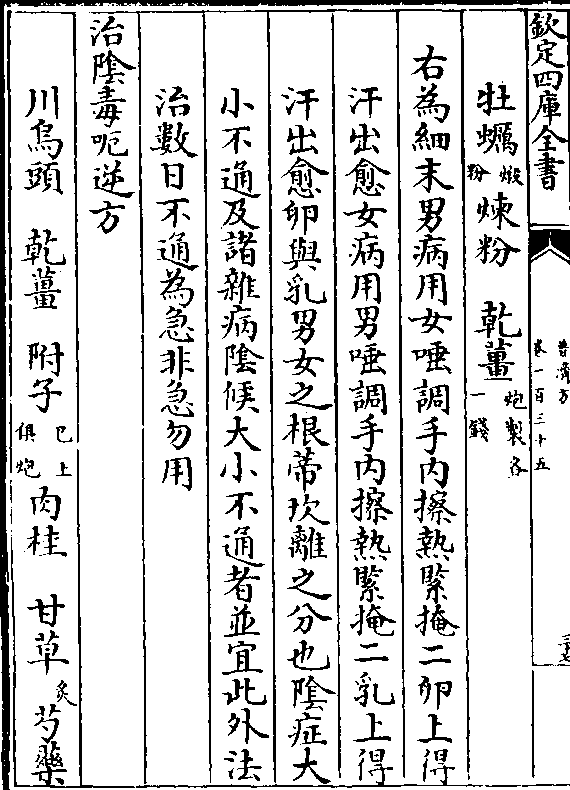 欽定四庫全書
普濟方
卷一百三十五
牡蠣煅粉煉粉 乾薑炮製各一錢
右為細末男病用女唾調手內擦熱緊掩二卵上得
汗出愈女病用男唾調手內擦熱緊掩二乳上得
汗出愈卵與乳男女之根蒂坎離之分也陰症大
小不通及諸雜病陰候大小不通者並宜此外法
治數日不通為急非急勿用
治陰毒呃逆方
川烏頭 乾薑 附子已上俱炮 肉桂 甘草炙 芍藥